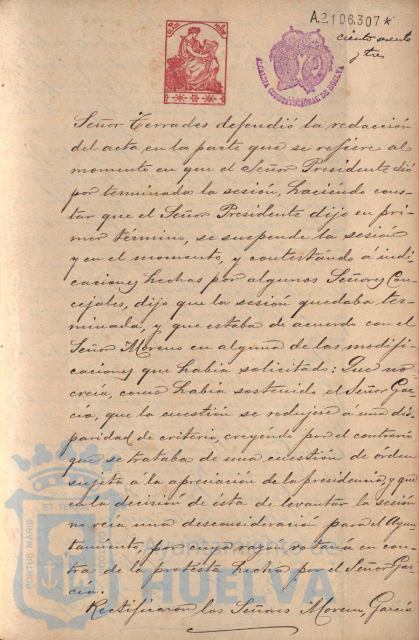 A.2106.307*
ciento sesenta
y tres
ALCALDIA CONSTITUCIONAL DE HUELVA
Señor Terrades defendió la redacción
del acta, en la parte que se refiere al
momento en que el Señor Presidente dió
por terminada la sesión, haciendo cons-
tar que el Señor Presidente dijo en pri-
mer término, se suspende la sesión
y en el momento, y contestando a indi-
caciones hechas por algunos Señores Con-
cejales, dijo que la sesión quedaba ter-
minada, y que estaba de acuerdo con el
Señor Moreno en alguna de las modifi-
caciones que había solicitado: Que no
creía, como había sostenido el Señor Gar-
cía, que la cuestión se redujera a una dis-
paridad de criterio, creyendo por el contrario
que se trataba de una cuestión de orden
sujeta a la apreciación de la presidencia, y que
en la decisión de ésta de levantar la sesión
no veía una desconsideración para el Ayun-
tamiento, por cuya razon votaría en con-
tra de la protesta hecha por el Señor Gar-
cía.
Rectificaron los Señores Moreno, García
PORTUS MARIS
ET TE
Ayuntamiento de
HUELVA